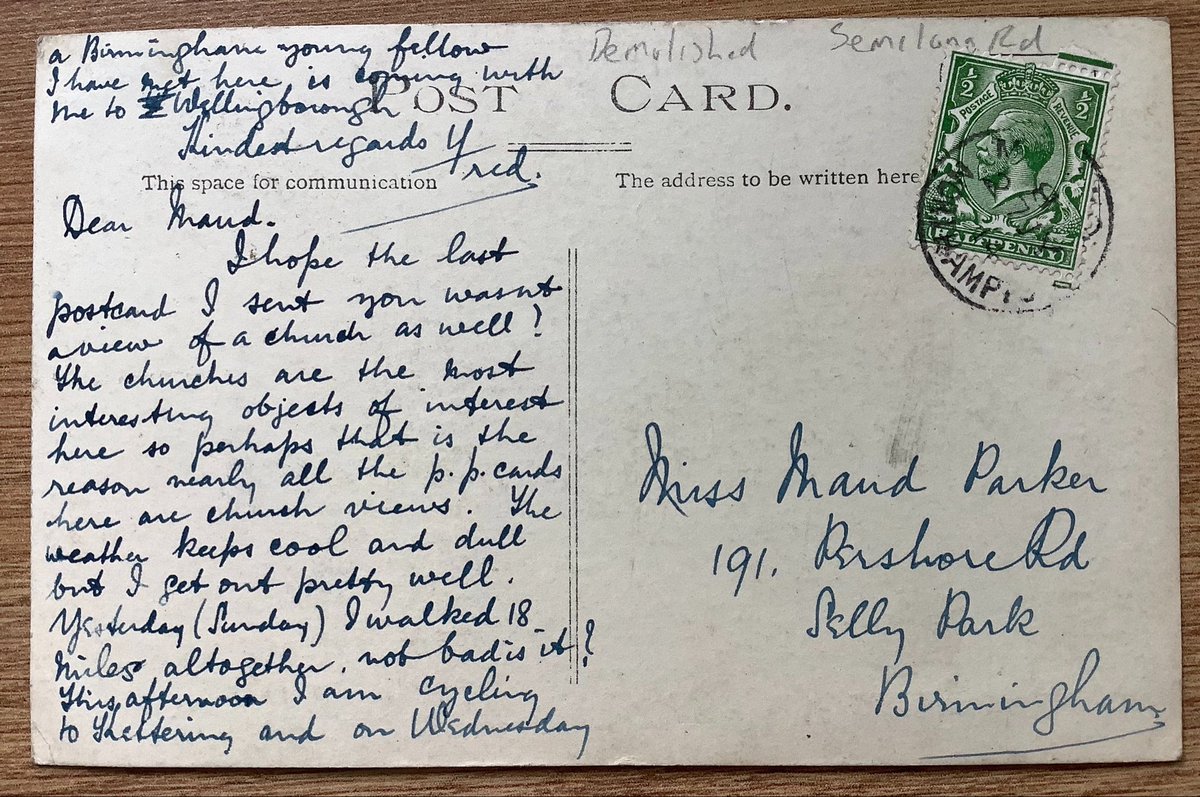 Demolished Semilong Rd
POST CARD.
This space for communication
The address to be written here
½ ½
POSTAGE REVENUE
HALFPENNY
Dear Maud.
I hope the last
postcard I sent you wasn't
a view of a church as well?
The churches are the most
interesting objects of interest
here so perhaps that is the
reason nearly all the p.p.cards
here are church views. The
weather keeps cool and dull
but I get out pretty well.
Yesterday (Sunday) I walked 18
miles altogether, not bad is it?
This afternoon I am cycling
to Kettering and on Wednesday
a Birmingham young fellow
I have met here is coming with
me to Wellingborough
Kindest regards
Fred.
Miss Maud Parker
191. Pershore Rd
Selly Park
Birmingham